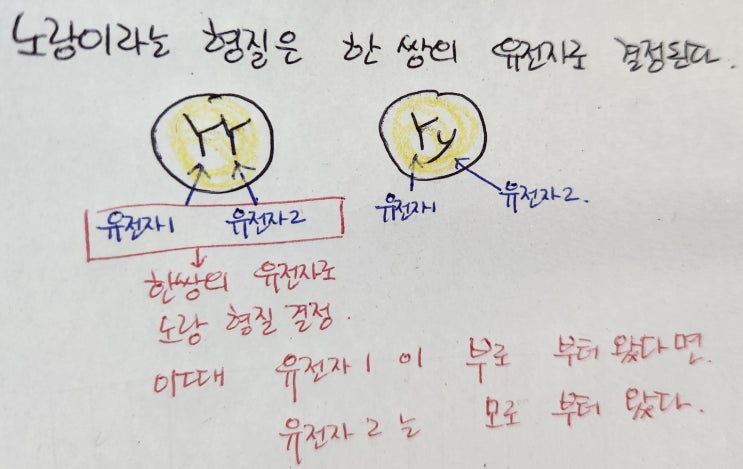 노랑이라는 형질은 한 쌍의 유전자로 결정된다.
YY Yy
유전자1 유전자2 유전자1 유전자2.
한쌍의 유전자로
노랑 형질 결정.
이때 유전자1이 부로 부터 왔다면.
유전자2는 모로 부터 왔다.